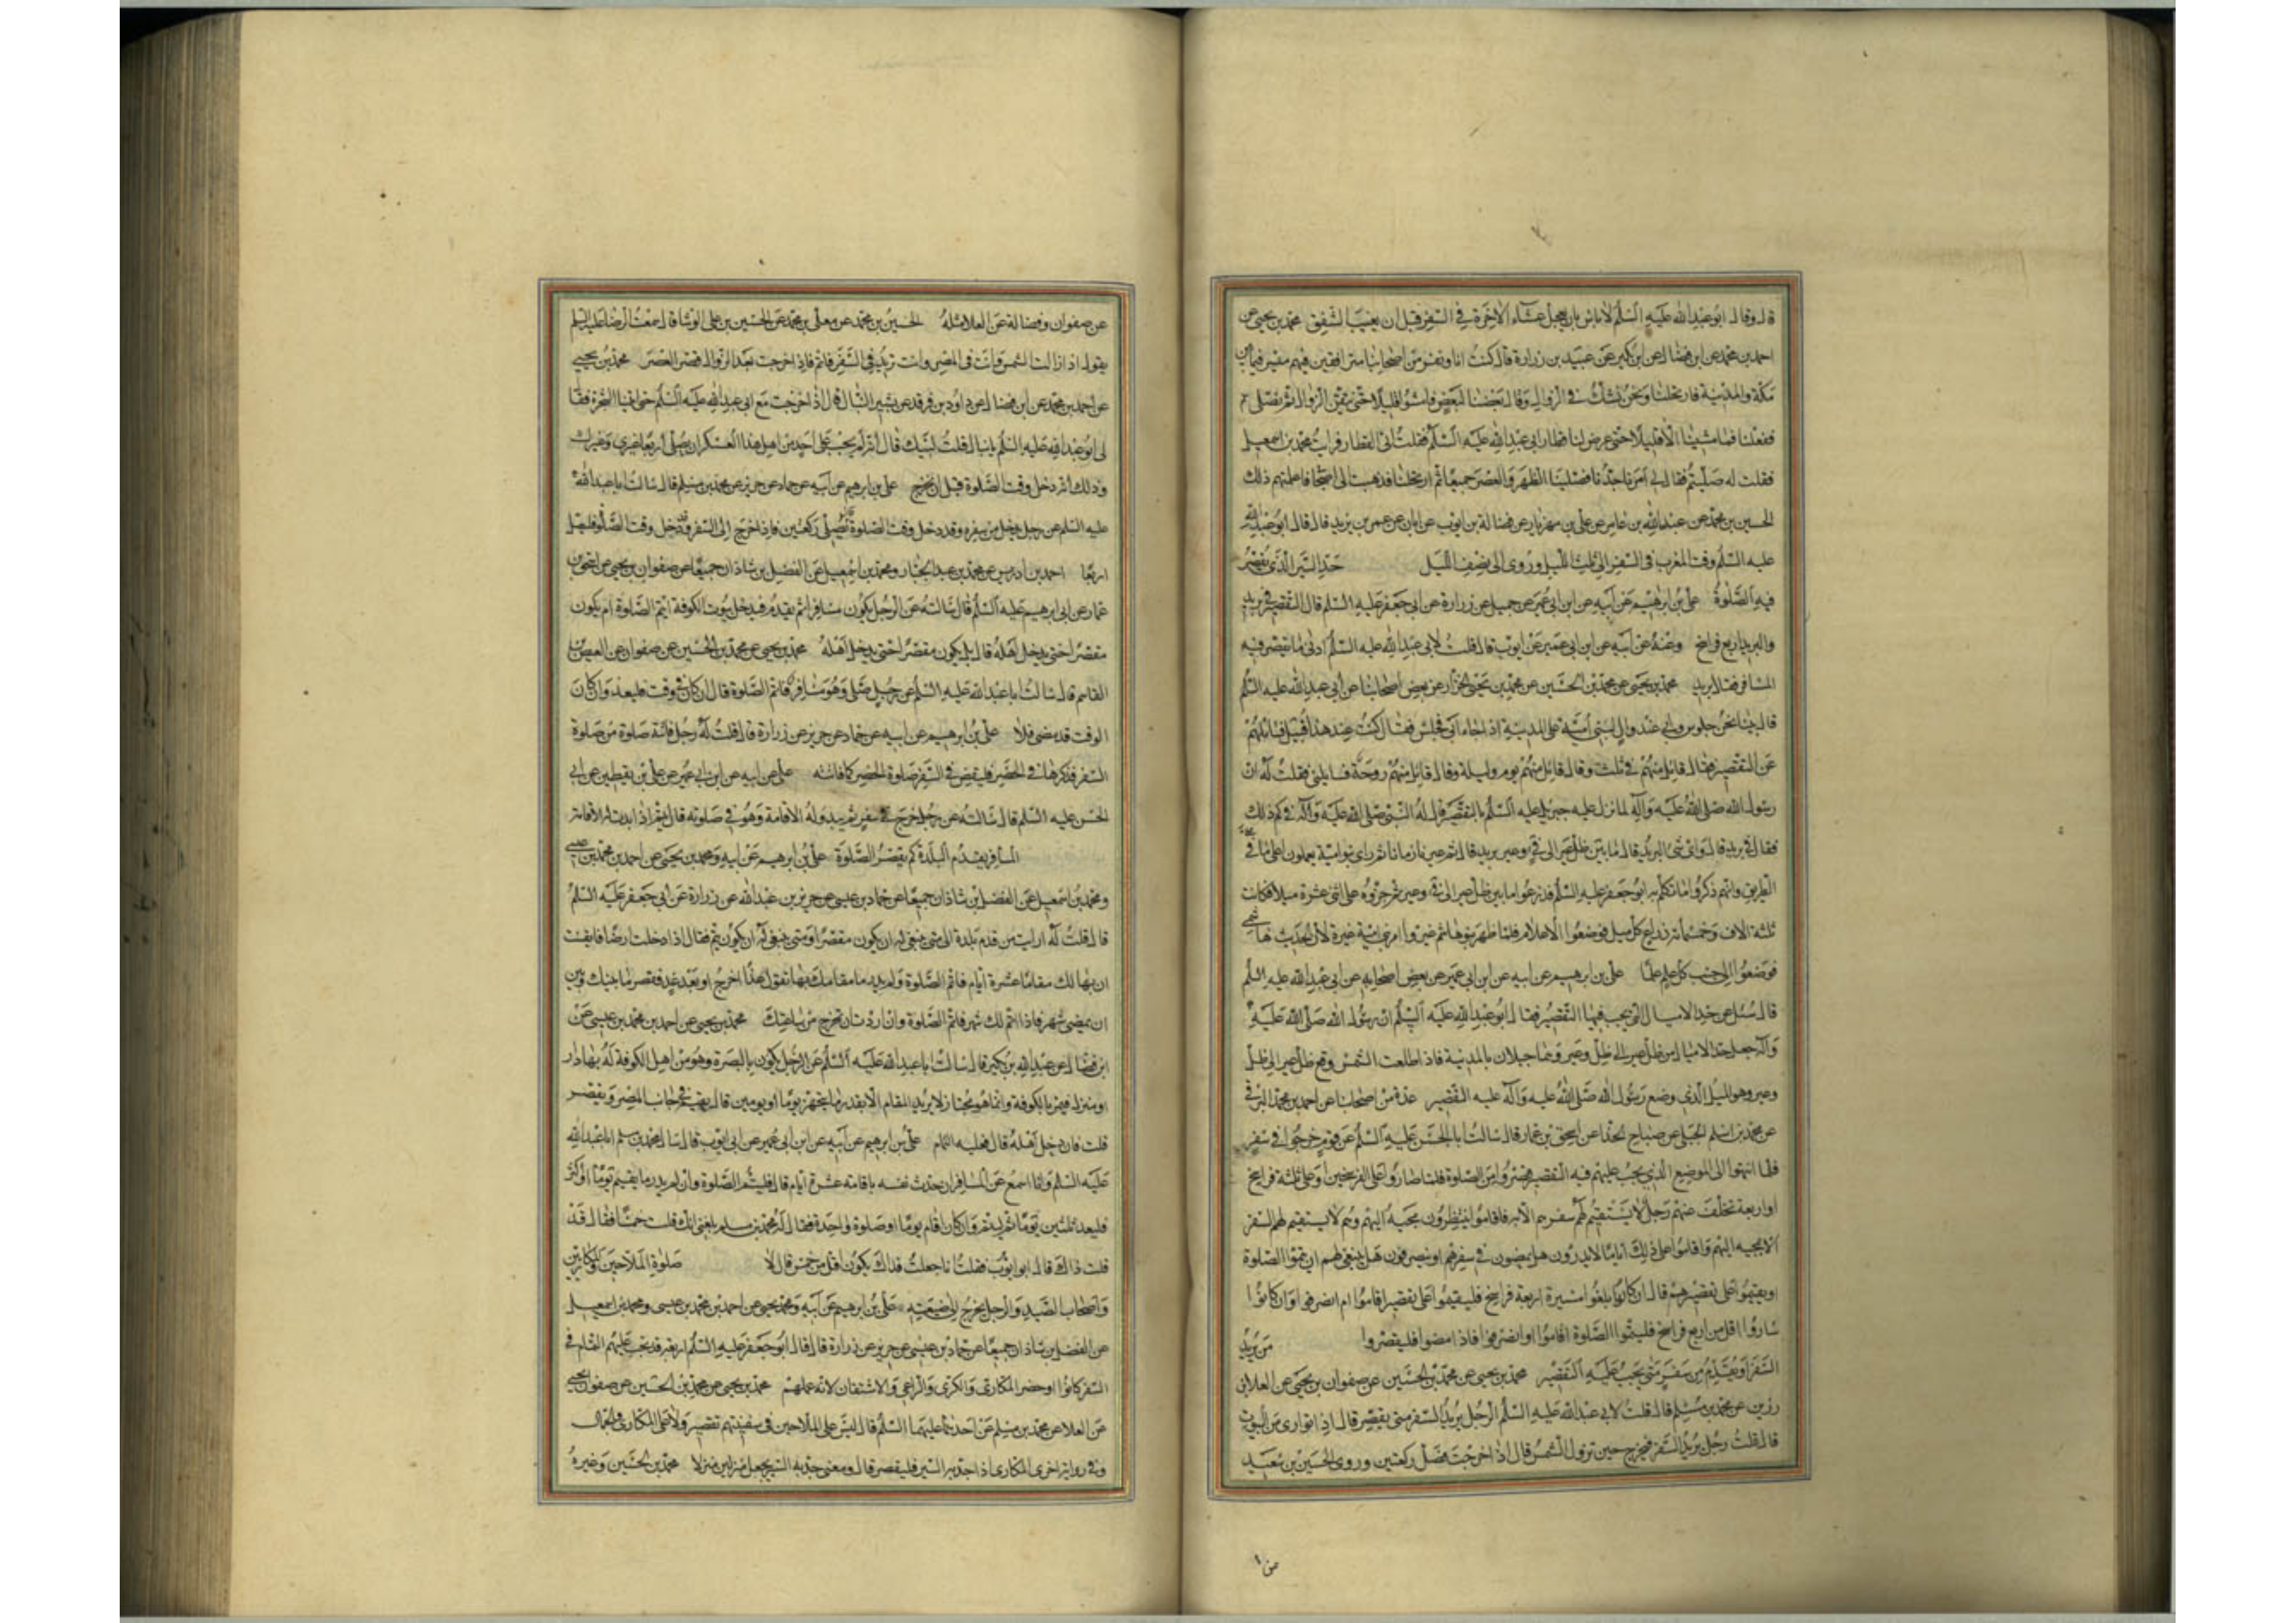 قال وقال ابو عبد الله عليه السلم لا باس بان يعجل عشاء الاخرة في السفر قبل ان يغيب الشفق محمد بن يحيى عن
احمد بن محمد عن ابن فضال عن ابن بكير عن عبيد بن زرارة قال كنت انا ونفر من اصحابنا مترافقين فيهم ميسر فيما بين
مكة والمدينة فارتحلنا ونحن نشك في الزوال وقال بعضنا لبعض فامشوا قليلا حتى نتيقن الزوال ثم نصلى
ففعلنا فما مشينا الا قليلا حتى عرض لنا قطار ابى عبد الله عليه السلم فقلت اتى القطار فرايت محمد بن اسمعيل
فقلت له صليتم فقال لي امرنا جدى فصلينا الظهر والعصر جميعا ثم ارتحلنا فذهبت الى اصحابى فاعلمتهم ذلك
الحسين بن محمد عن عبد الله بن عامر عن على بن مهزيار عن فضالة بن ايوب عن ابان عن عمر بن يزيد قال قال ابو عبد الله
عليه السلم وقت المغرب في السفر الى ثلث الليل وروى الى نصف الليل حد السير الذى يقصر
فيه الصلوة على بن ابرهيم عن ابيه عن ابن ابى عمير عن جميل عن زرارة عن ابى جعفر عليه السلم قال التقصير في بريد
والبريد اربع فراسخ وعنه عن ابيه عن ابن ابى عمير عن ابى ايوب قال قلت لابى عبد الله عليه السلم ادنى ما يقصر فيه
المسافر فقال بريد محمد بن يحيى عن محمد بن الحسين عن محمد بن يحيى الخزاز عن بعض اصحابنا عن ابى عبد الله عليه السلم
قال بينا نحن جلوس وابى عند وال لبنى امية على المدينة اذ جاء ابى فجلس فقال كنت عند هذا قبيل فسائلهم
عن التقصير فقال قائل منهم في ثلث وقال قائل منهم يوم وليلة وقال قائل منهم روحة فسايلنى فقلت له ان
رسول الله صلى الله عليه وآله لما نزل عليه جبريل عليه السلم بالتقصير قال له النبى صلى الله عليه وآله في كم ذلك
فقال في بريد قال واى شىء البريد قال ما بين ظل عير الى فئ وعير قال ثم عبرنا زمانا ثم راى بنو امية يعملون اعلاما في
الطريق وانهم ذكروا ما تكلم به ابو جعفر عليه السلم فذرعوا ما بين ظل عير الى فئ وعير ثم جزؤه على اثنى عشرة ميلا فكانت
ثلثة الاف وخمسمائة ذراع كل ميل فوضعوا الاعلام فلما ظهر بنو هاشم غيروا امر بنى امية غيرة لان الحديث هاشمى
فوضعوا الى جنب كل علم علما على بن ابرهيم عن ابيه عن ابن ابى عمير عن بعض اصحابه عن ابى عبد الله عليه السلم
قال سئل عن حد الاميال التى يجب فيها التقصير فقال ابو عبد الله عليه السلم ان رسول الله صلى الله عليه
وآله جعل حد الاميال من ظل عير الى ظل وعير وهما جبلان بالمدينة فاذا طلعت الشمس وقع ظل عير الى ظل
وعير وهو الميل الذى وضع رسول الله صلى الله عليه وآله عليه التقصير عدة من اصحابنا عن احمد بن محمد البرقى
عن محمد بن اسلم الجبلى عن صباح الحذا عن اسحق بن عمار قال سالت ابا الحسن عليه السلم عن قوم خرجوا في سفر
فلما انتهوا الى الموضع الذى يجب عليهم فيه التقصير قصروا من الصلوة فلما صاروا على الفرسخين او على ثلثة فراسخ
او اربعة تخلف عنهم رجل لا يستقيم لهم سفرهم الا به فاقاموا ينتظرون مجيئه اليهم وهم لا يستقيم لهم السفر
الا بمجيئه اليهم واقاموا على ذلك اياما لا يدرون هل يمضون في سفرهم او ينصرفون هل ينبغى لهم ان يتموا الصلوة
او يقيموا على تقصيرهم قال ان كانوا بلغوا مسيرة اربعة فراسخ فليقيموا على تقصيرهم اقاموا ام انصرفوا وان كانوا
ساروا اقل من اربع فراسخ فليتموا الصلوة اقاموا او انصرفوا فاذا مضوا فليقصروا من يريد
السفر او يقدم من سفر متى يجب عليه التقصير محمد بن يحيى عن محمد بن الحسين عن صفوان بن يحيى عن العلا بن
رزين عن محمد بن مسلم قال قلت لابى عبد الله عليه السلم الرجل يريد السفر متى يقصر قال اذا توارى من البيوت
قال قلت رجل يريد السفر فيخرج حين تزول الشمس قال اذا خرجت فصل ركعتين وروى الحسين بن سعيد
عن صفوان وفضالة عن العلا مثله الحسين بن محمد عن معلى بن محمد عن الحسين بن على الوشا قال سمعت الرضا عليه السلم
يقول اذا زالت الشمس وانت في المصر وانت تريد في السفر فاتم فاذا خرجت بعد الزوال فقصر العصر محمد بن يحيى
عن احمد بن محمد عن ابن فضال عن داود بن فرقد عن بشير النبال قال خرجت مع ابى عبد الله عليه السلم حتى اتينا الشجرة فقال
لى ابو عبد الله عليه السلم يا نبال قلت لبيك قال انه لم يجب على احد من اهل هذا العسكر ان يصلى اربعا غيرى وغيرك
وذلك انه دخل وقت الصلوة قبل ان نخرج على بن ابرهيم عن ابيه عن حماد عن حريز عن محمد بن مسلم قال سالت ابا عبد الله
عليه السلم عن رجل يدخل من سفره وقد دخل وقت الصلوة قال يصلى ركعتين فاذا خرج الى السفر وقد دخل وقت الصلوة فليصل
اربعا احمد بن ادريس عن محمد بن عبد الجبار ومحمد بن اسمعيل عن الفضل بن شاذان جميعا عن صفوان بن يحيى عن اسحق بن
عمار عن ابى ابرهيم عليه السلم قال سالته عن الرجل يكون مسافرا ثم يقدم فيدخل بيوت الكوفة ايتم الصلوة ام يكون
مقصرا حتى يدخل اهله قال بل يكون مقصرا حتى يدخل اهله محمد بن يحيى عن محمد بن الحسين عن صفوان عن العيص بن
القاسم قال سالت ابا عبد الله عليه السلم عن رجل صلى وهو مسافر فاتم الصلوة قال ان كان في وقت فليعد وان كان
الوقت قد مضى فلا على بن ابرهيم عن ابيه عن حماد عن حريز عن زرارة قال قلت له رجل فاتته صلوة من صلوة
السفر فذكرها في الحضر فليقض في السفر صلوة الحضر كما فاتته على عن ابيه عن ابن ابى عمير عن على بن يقطين عن ابى
الحسن عليه السلم قال سالته عن رجل خرج في سفر ثم يبدو له الاقامة وهو في صلوته قال يتم اذا بدت له الاقامة
المسافر يقدم البلدة كم يقصر الصلوة على بن ابرهيم عن ابيه ومحمد بن يحيى عن احمد بن محمد بن عيسى
ومحمد بن اسمعيل عن الفضل بن شاذان جميعا عن حماد بن عيسى عن حريز بن عبد الله عن زرارة عن ابى جعفر عليه السلم
قال قلت له ارايت من قدم بلدة الى متى ينبغى له ان يكون مقصرا ومتى ينبغى له ان يكون يتم فقال اذا دخلت ارضا فايقنت
ان بها لك مقاما عشرة ايام فاتم الصلوة وان لم تدر ما مقامك بها تقول غدا اخرج او بعد غد فقصر ما بينك وبين
ان يمضى شهر فاذا تم لك شهر فاتم الصلوة وان اردت ان تخرج من ساعتك محمد بن يحيى عن احمد بن محمد بن عيسى عن
ابن فضال عن عبد الله بن بكير قال سالت ابا عبد الله عليه السلم عن الرجل يكون بالبصرة وهو من اهل الكوفة له بها دار
ومنزل فيمر بالكوفة وانما هو مجتاز لا يريد المقام الا بقدر ما يتجهز يوما او يومين قال يقيم في جانب المصر ويقصر
قلت فان دخل اهله قال عليه التمام على بن ابرهيم عن ابيه عن ابن ابى عمير عن ابى ايوب قال سال محمد بن مسلم ابا عبد الله
عليه السلم وانا اسمع عن المسافر ان حدث نفسه باقامة عشرة ايام قال فليتم الصلوة وان لم يدر ما يقيم يوما او اكثر
فليعد ثلثين يوما ثم ليتم وان كان اقام يوما او صلوة واحدة فقال له محمد بن مسلم بلغنى انك قلت خمسا فقال قد
قلت ذاك قال ابو ايوب فقلت انا جعلت فداك يكون اقل من خمس قال لا صلوة الملاحين والمكارين
واصحاب الصيد والرجل يخرج الى ضيعته على بن ابرهيم عن ابيه ومحمد بن يحيى عن احمد بن محمد بن عيسى ومحمد بن اسمعيل
عن الفضل بن شاذان جميعا عن حماد بن عيسى عن حريز عن زرارة قال قال ابو جعفر عليه السلم اربعة قد يجب عليهم التمام في
السفر كانوا او حضر المكارى والكرى والراعى والاشتقان لانه عملهم محمد بن يحيى عن محمد بن الحسين عن صفوان بن يحيى
عن العلا عن محمد بن مسلم عن احدهما عليهما السلم قال ليس على الملاحين في سفينتهم تقصير ولا على المكارى والجمال
وفي رواية اخرى المكارى اذا جد به السير فليقصر قال ومعنى جد به السير يجعل منزلين منزلا محمد بن الحسين وغيره